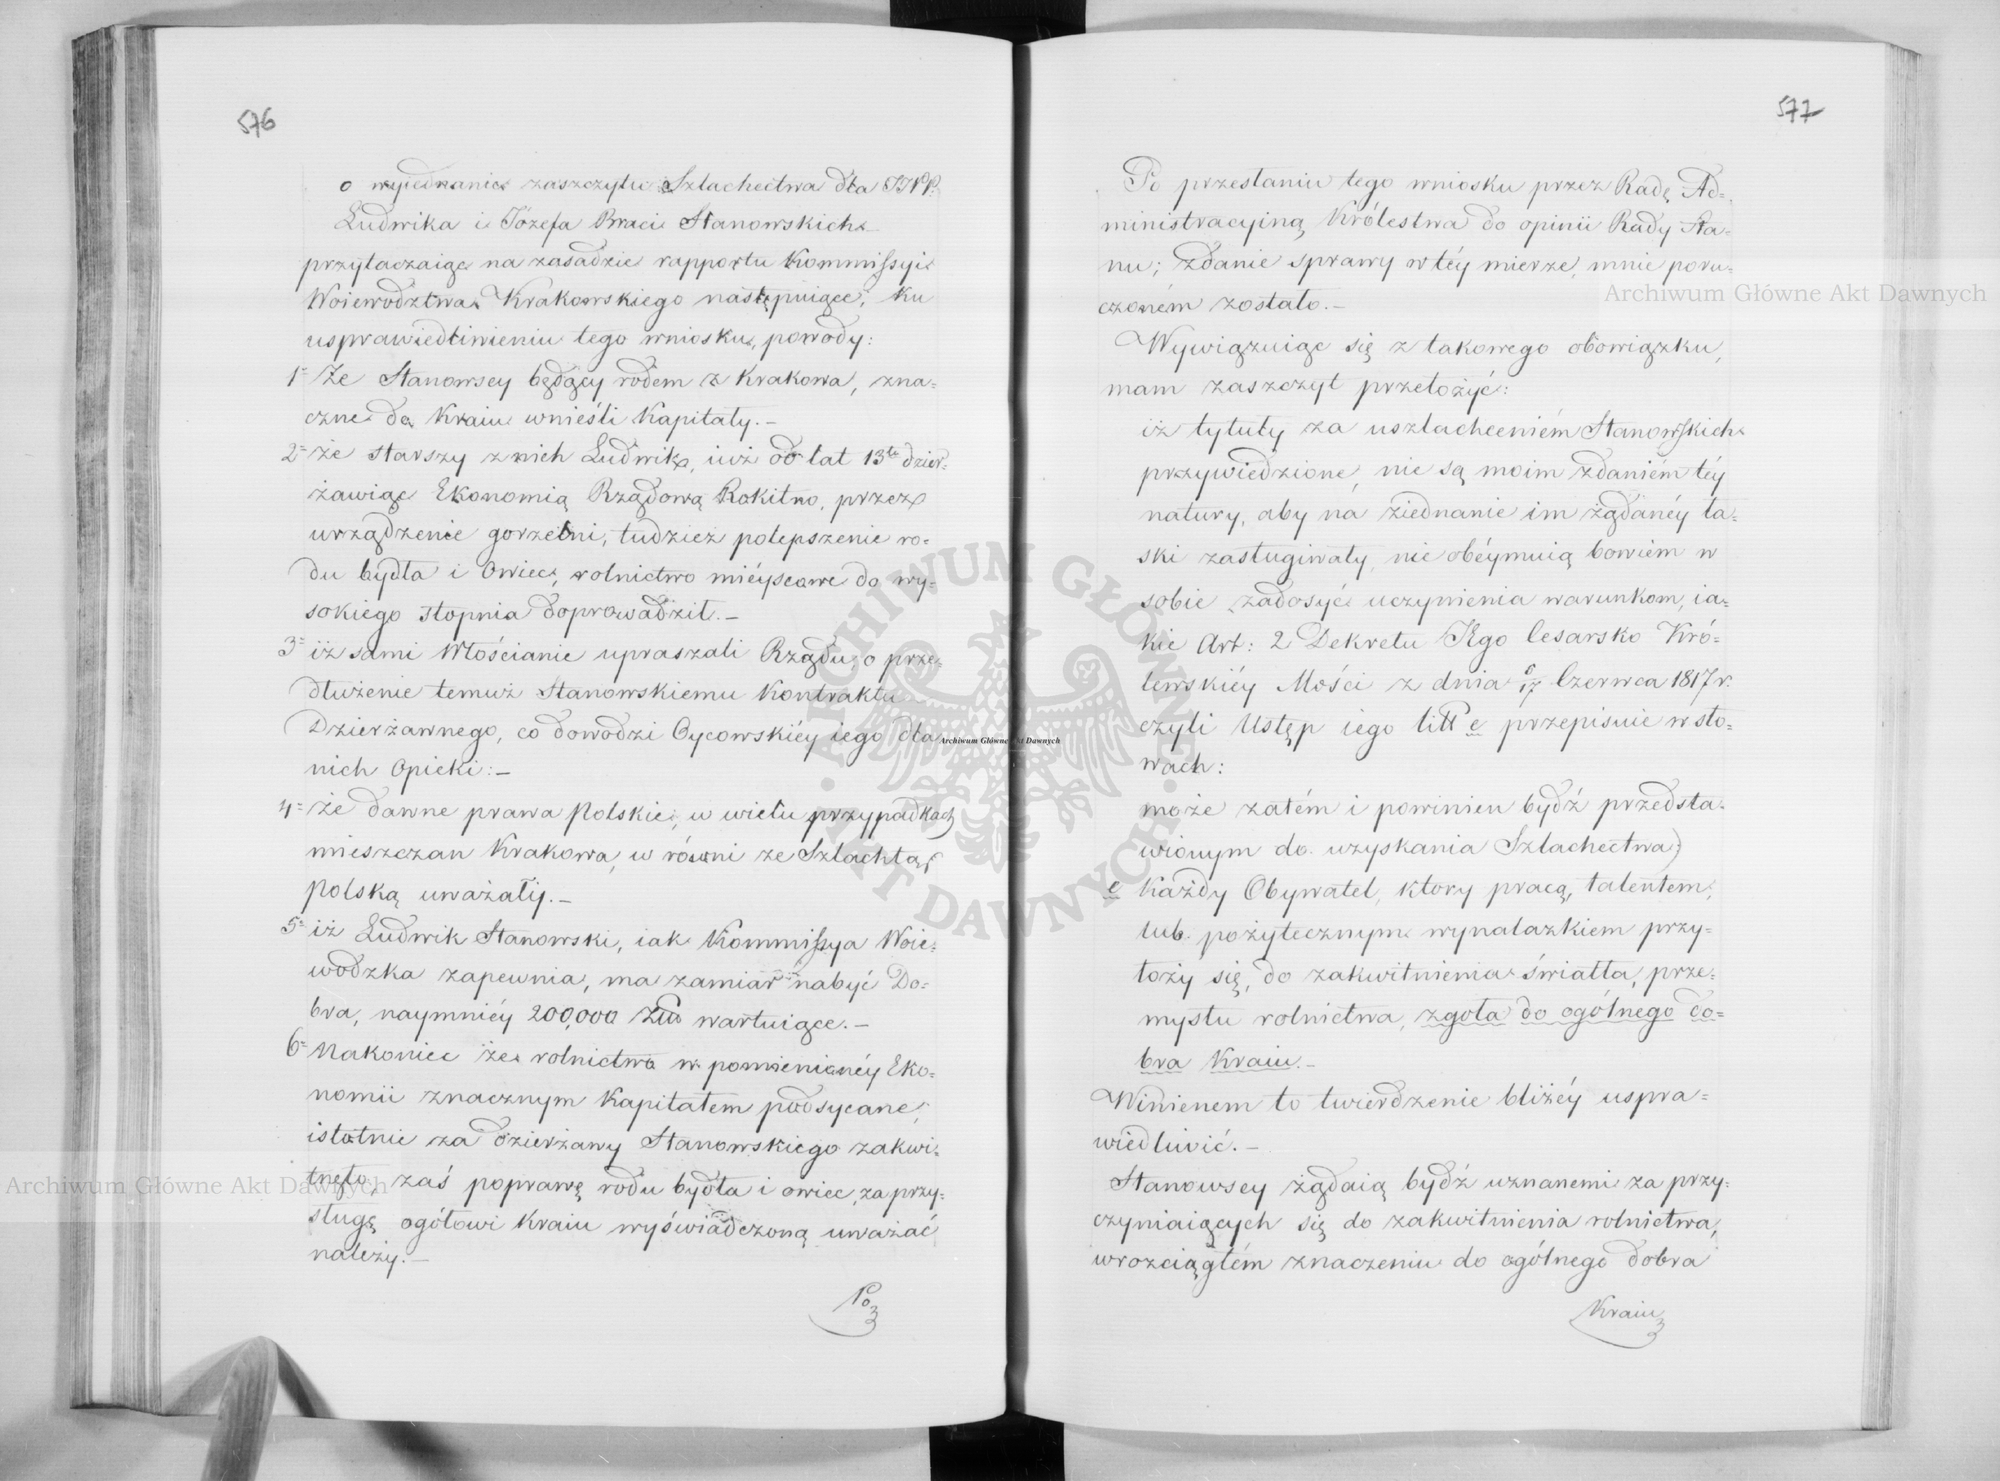 576
o wyiednanie zaszczytu Szlachectwa dla JJPP.
Ludwika i Józefa Braci Stanowskich
przytaczaiąc na zasadzie rapportu Kommissyi
Woiewodztwa Krakowskiego następuiące, ku
usprawiedliwieniu tego wniosku, powody:
1= Że Stanowscy będący rodem z Krakowa, zna=
czne do Kraiu wnieśli Kapitały.—
2= że starszy z nich Ludwik, iuż od lat 13tu dzier=
żawiąc Ekonomią Rządową Rokitno, przez
urządzenie gorzelni, tudzież polepszenie ro=
du bydła i Owiec, rolnictwo mieyscowe do wy=
sokiego stopnia doprowadził.—
3= iż sami Włościanie upraszali Rządu o prze=
dłużenie temuż Stanowskiemu Kontraktu
Dzierżawnego, co dowodzi Oycowskiéy iego dla
nich Opieki:—
4= że dawne prawa Polskie, w wielu przypadkach
mieszczan Krakowa, w równi ze Szlachtą
Polską uważały.—
5= iż Ludwik Stanowski, iak Kommissya Woie=
wodzka zapewnia, ma zamiar nabyć Do=
bra, naymniéy 200,000 Złł wartuiące.—
6= Nakoniec że rolnictwo w pomienionéy Eko=
nomii znacznym Kapitałem podsycane,
istotnie za dzierżawy Stanowskiego zakwi=
tnęło, zaś poprawę rodu bydła i owiec, za przy=
sługę ogółowi Kraiu wyświadczoną uważać
należy.—
Po
577
Po przesłaniu tego wniosku przez Radę Ad=
ministracyiną Królestwa do opinii Rady Sta=
nu; zdanie sprawy w téy mierze, mnie poru=
czoném zostało.—
Wywiązuiąc się z takowego obowiązku,
mam zaszczyt przełożyć:
iż tytuły za uszlachceniém Stanowskich
przywiedzione, nie są moim zdaniém téy
natury, aby na ziednanie im żądanéy ła=
ski zasługiwały, nie obéymuią bowiem w
sobie zadosyć uczynienia warunkom, ia=
kie Art: 2 Dekretu JEgo Cesarsko Kró=
lewskiéy Mości z dnia 5/17 Czerwca 1817 r.
czyli Ustęp iego litt e przepisuie w sło=
wach:
może zatém i powinien bydź przedsta=
wionym do uzyskania Szlachectwa)
e Każdy Obywatel, ktory pracą, talentem,
lub pożytecznym wynalazkiem przy=
łoży się, do zakwitnienia światła, prze=
mysłu rolnictwa, zgoła do ogólnego do=
bra Kraiu.—
Winienem to twierdzenie bliżéy uspra=
wiedliwić.—
Stanowscy żądaią bydź uznanemi za przy=
czyniaiących się do zakwitnienia rolnictwa,
w rozciągłém znaczeniu do ogólnego dobra
Kraiu
Archiwum Główne Akt Dawnych
Archiwum Główne Akt Dawnych
Archiwum Główne Akt Dawnych
ARCHIWUM GŁÓWNE AKT DAWNYCH